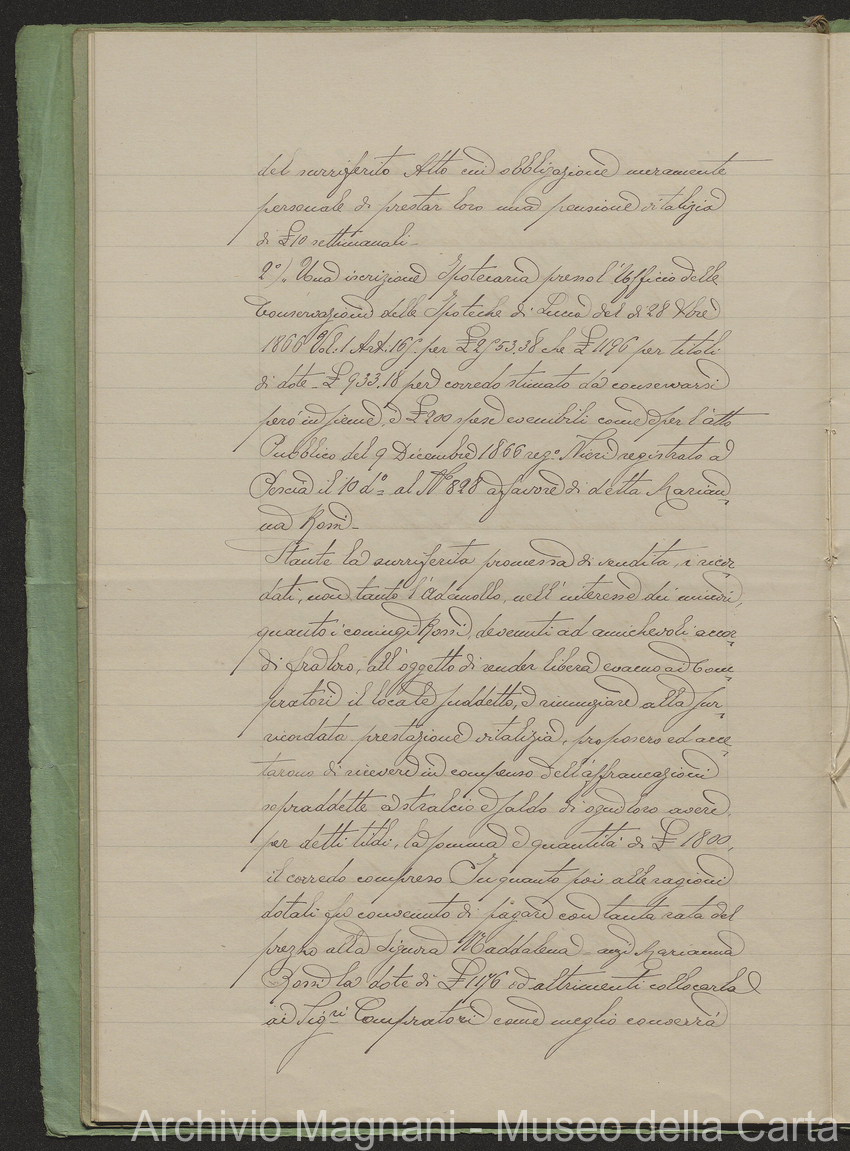 del surriferito Atto cui obbligazione meramente
personale di prestar loro una pensione vitalizia
di £ 10 settimanali -
2°/. Una iscrizione Ipotecaria presso l'Uffficio delle
Conservazione delle Ipoteche di Lucca del dì 28 Xbre
1866 Vol: 1 Art: per che £ 1196 per titoli
di dote - £ 933.18 per corredo stimato da conservarsi
però insieme, e £ 200 spese evenibili come per l'atto
Pubblico del 9 Dicembre 1866 rog.° Nieri registrato a
Pescia il 10 d.° al N° 828 a favore di detta Marian=
na Rossi -
Stante la surriferita promessa di vendita, i ricor=
dati, non tanto l'Adamollo, nell'interesse dei minori,
quanto i coniugi Rossi, devenuti ad amichevoli accor=
di fra loro, all'oggetto di render libero e vacuo ai Com=
pratori il locale suddetto, e rinunziare alla sur=
ricordata prestazione vitalizia, proposero ed acce=
tarono di ricevere in compenso dell'affrancazioni
sopraddette a stralcio e saldo di ogni loro avere
per detti titoli, la somma e quantità di £ 1800,
il corredo compreso. In quanto poi alle ragioni
dotali fu convenuto di pagare con tanta rata del
prezzo alla Signora Maddalena - anzi Marianna
Rossi la dote di £ 1196 od altrimenti collocarla
ai Sig.ri Compratori come meglio converrà
Archivio Magnani - Museo della Carta